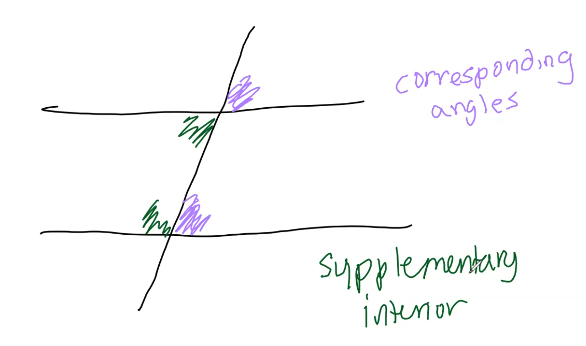 corresponding
angles
supplementary
interior